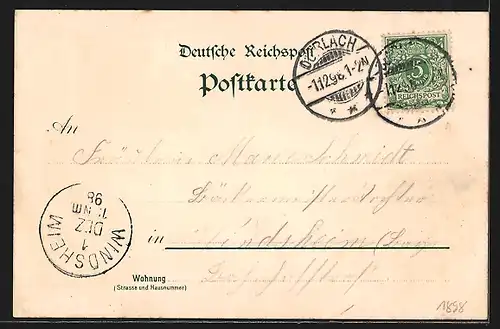 Deutsche Reichspost
Postkarte
DURLACH
1.12.98.1-2N
5
REICHSPOST
An
Fräulein Marie Schmidt
Bäckermeisterstochter
in Windsheim (Bay
WINDSHEIM
1
DEZ
NM
98
Wohnung
(Strasse und Hausnummer)
1898